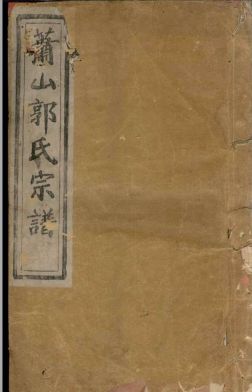 蕭山郭氏宗譜